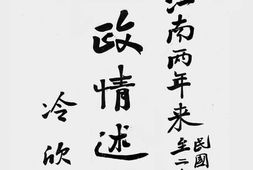 江南两年来
民國
至二
政情述
冷欣